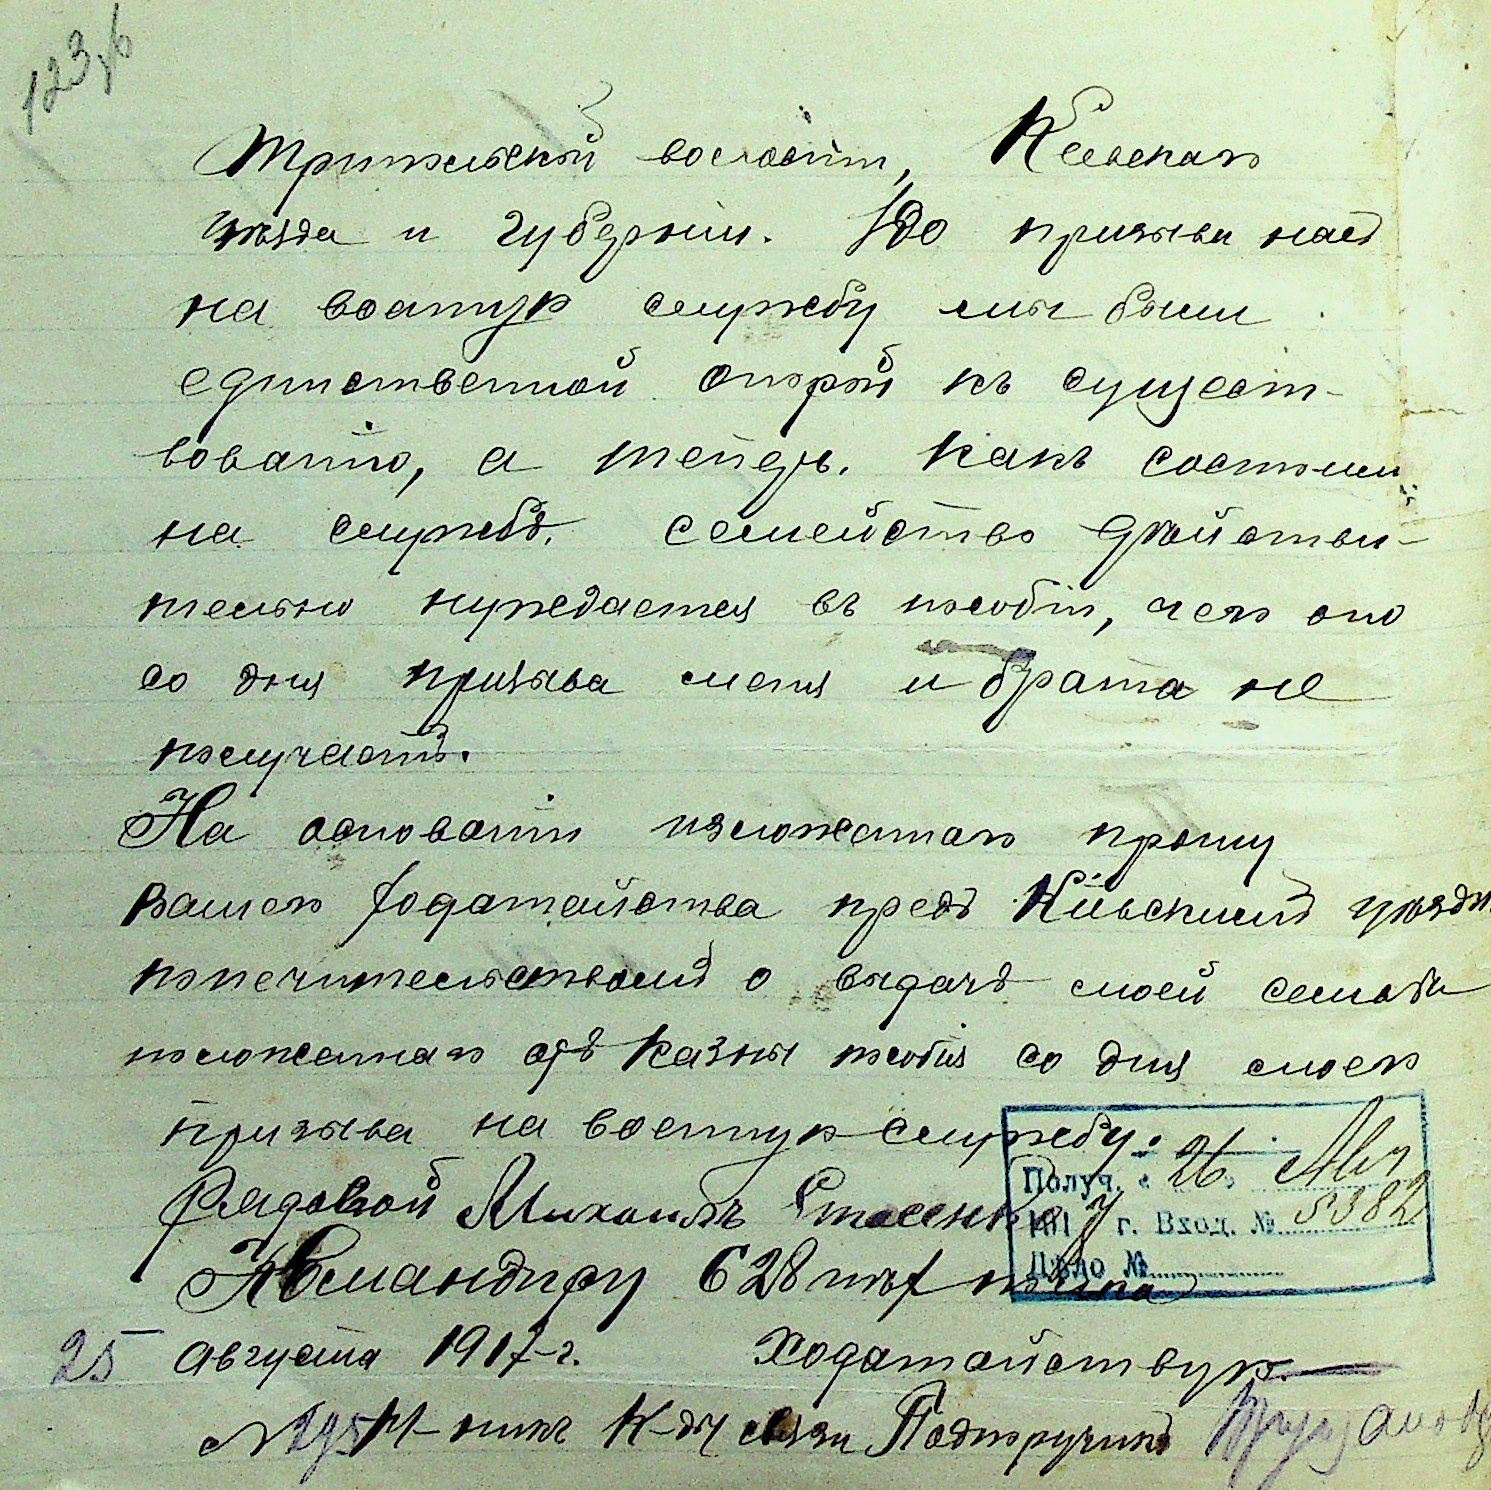 123 об
Трипольской волости, Кіевскаго
уѣзда и губерніи. До призыва насъ
на военную службу мы были
единственной опорой къ сущест-
вованію, а теперь, какъ состоимъ
на службѣ, семейство дѣйстви-
тельно нуждается въ пособіи, чего оно
со дня призыва меня и брата не
получаетъ.
На основаніи изложеннаго прошу
Вашего ходатайства предъ Кіевскимъ уѣздн.
попечительствомъ о выдачѣ моей семьѣ
положеннаго отъ казны пособія со дня моего
призыва на военную службу.
Рядовой Михаилъ Стасенко
Получ. « 26 » Авг
191 7 г. Вход. № 5382
Дѣло №
Командиру 628 пѣх полка
25 августа 1917 г. Ходатайствую.
№ 195 Н-никъ К-ды связи Подпоручикъ